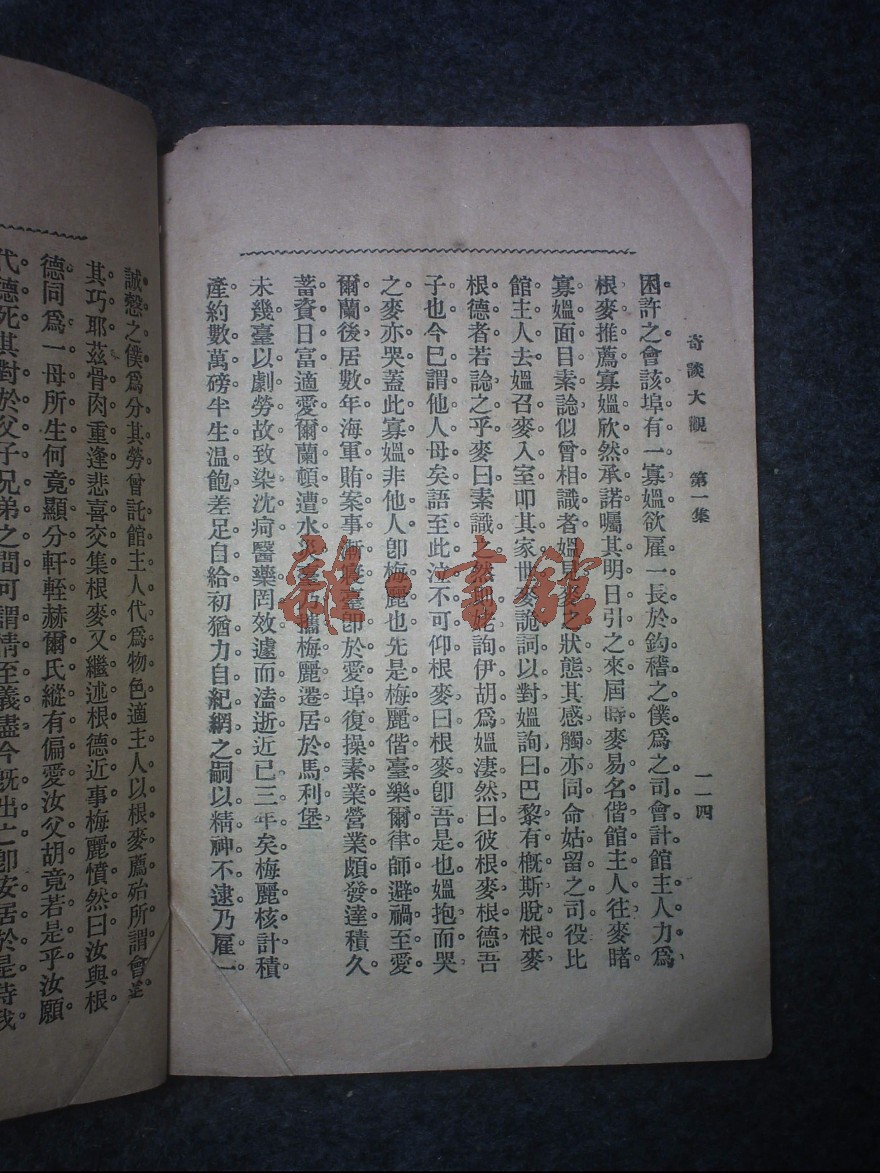 奇談大觀　第一集
一一四
困。許之。會該埠有一寡媼。欲雇一長於鈎稽之僕。爲之司會計。館主人力爲
根麥推薦。寡媼欣然承諾。囑其明日引之來。屆時麥易名偕館主人往。麥睹
寡媼面目。素諗似曾相識者。媼見麥之狀態。其感觸亦同。命姑留之司役。比
館主人去。媼召麥入室。叩其家世。麥詭詞以對。媼詢曰。巴黎有概斯脫根麥
根德者。若諗之乎。麥曰。素識之。然
詢伊胡爲。媼淒然曰。彼根麥根德。吾
子也。今已謂他人母矣。語至此。泣不可仰。根麥曰。根麥卽吾是也。媼抱而哭
之。麥亦哭。蓋此寡媼非他人。卽梅麗也。先是梅麗偕臺樂爾律師避禍至愛
爾蘭後。居數年。海軍賄案事漸寢。臺卽於愛埠復操素業。營業頗發達。積久
蓄資日富。適愛爾蘭頓遭水
攜梅麗遷居於馬利堡
未幾臺以劇勞故。致染沈疴。醫藥罔效。遽而溘逝。近已三年矣。梅麗核計積
產。約數萬磅。半生温飽。差足自給。初猶力自紀綱之。嗣以精神不逮。乃雇一
誠慤之僕。爲分其勞。曾託館主人代爲物色。適主人以根麥薦。殆所謂會逢
其巧耶。茲骨肉重逢。悲喜交集。根麥又繼述根德近事。梅麗憤然曰。汝與根
德同爲一母所生。何竟顯分軒輊。赫爾氏縱有偏愛。汝父胡竟若是乎。汝願
代德死。其對於父子兄弟之間。可謂情至義盡。今旣出亡。卽安居於是。待我